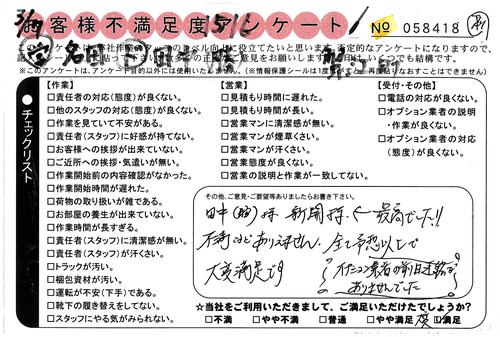 お客様不満足度アンケート
№ 058418
このアンケートは、弊社作業の
レベル向上に役立てたいと思います。否定的なアンケートになりますので、
※このアンケートは、アンケート目的以外には使用いたしません。(※情報保護シールは1度
再度貼りなおすことはできません)
チェックリスト
【作業】
□責任者の対応(態度)が良くない。
□他のスタッフの対応(態度)が良くない。
□作業を見ていて不安がある。
□責任者(スタッフ)に好感が持てない。
□お客様への挨拶が出来ていない。
□ご近所への挨拶・気遣いが無い。
□作業開始前の内容確認がなかった。
□作業開始時間が遅れた。
□荷物の取り扱いが雑である。
□お部屋の養生が出来ていない。
□作業時間が長すぎる。
□責任者(スタッフ)に清潔感が無い。
□責任者(スタッフ)が汗くさい。
□トラックが汚い。
□梱包資材が汚い。
□運転が不安(下手)である。
□靴下の履き替えをしてない。
□スタッフにやる気がみられない。
【営業】
□見積もり時間に遅れた。
□見積もり時間が長い。
□営業マンに清潔感が無い。
□営業マンが煙草くさい。
□営業マンが汗くさい。
□営業態度が良くない。
□営業の説明と作業が一致してない。
【受付・その他】
□電話の対応が良くない。
□オプション業者の説明
・作業が良くない。
□オプション業者の対応
(態度)が良くない。
その他、ご意見・ご要望等ありましたらお書き下さい。
田中(勝)様 新開様 ← 最高でした!!
不満などありません。全て予想以上で
大変満足です
オプション業者の前日連絡が
ありませんでした
☆当社をご利用いただきまして、ご満足いただけたでしょうか?
□不満 □やや不満 □普通 □やや満足 □満足